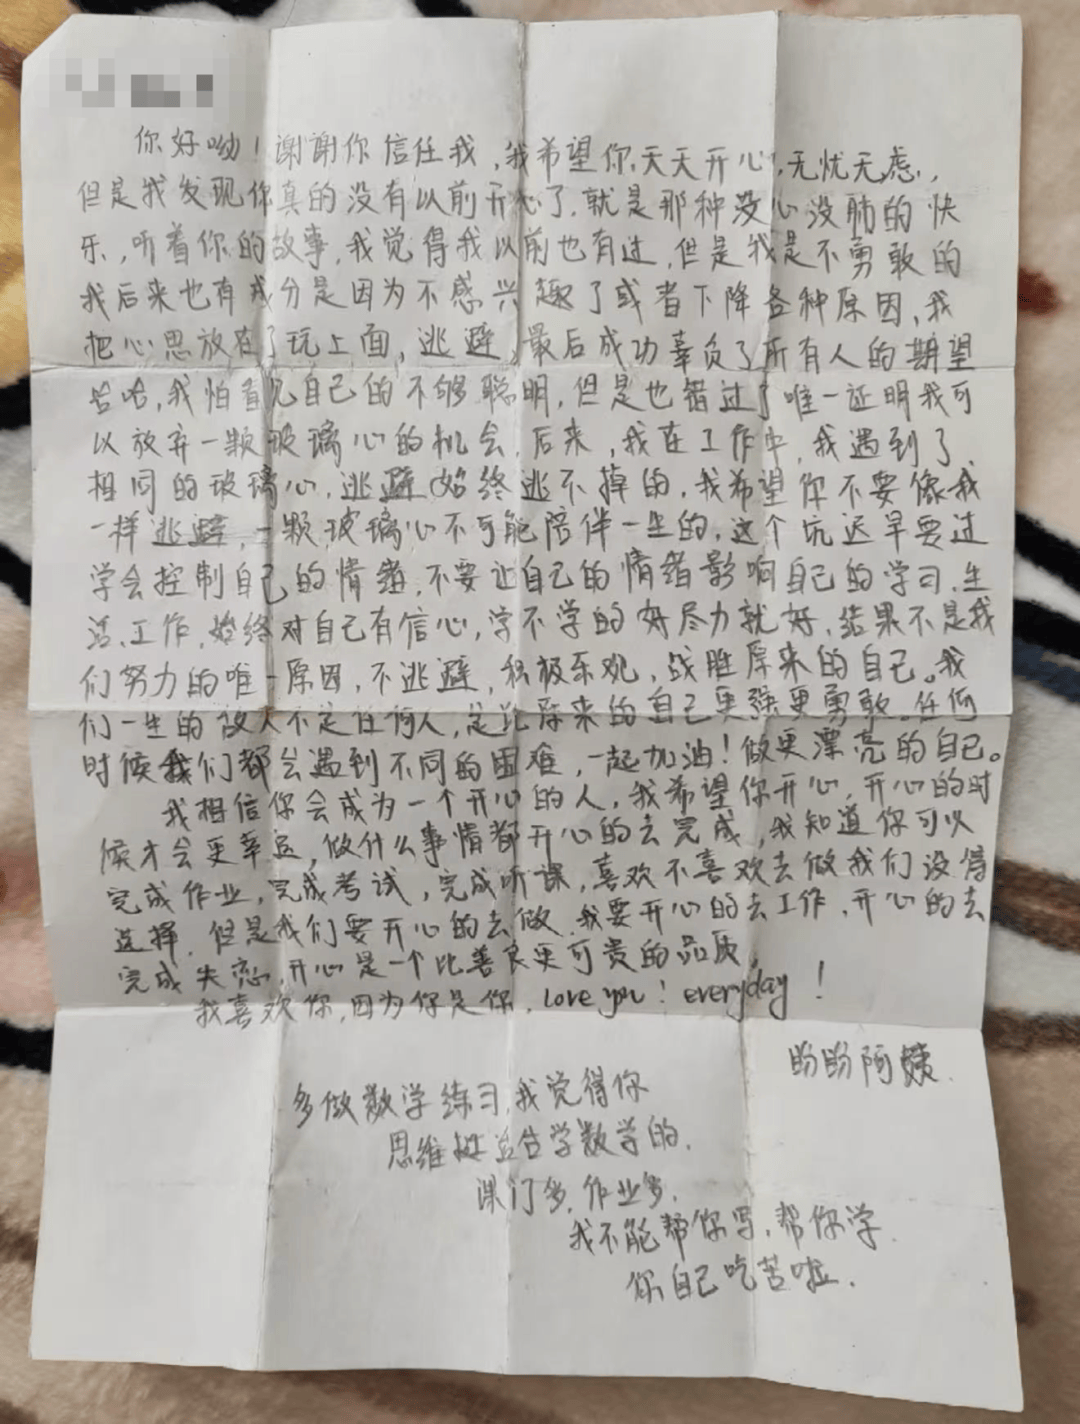 你好呦！谢谢你信任我，我希望你天天开心，无忧无虑，
但是我发现你真的没有以前开心了，就是那种没心没肺的快
乐，听着你的故事，我觉得我以前也有过，但是我是不勇敢的
我后来也有成分是因为不感兴趣了或者下降各种原因，我
把心思放在了玩上面，逃避，最后成功辜负了所有人的期望
哈哈，我怕看见自己的不够聪明，但是也错过了唯一证明我可
以放弃一颗玻璃心的机会，后来，我在工作中，我遇到了
相同的玻璃心，逃避始终逃不掉的，我希望你不要像我
一样逃避，一颗玻璃心不可能陪伴一生的，这个坑迟早要过
学会控制自己的情绪，不要让自己的情绪影响自己的学习、生
活、工作，始终对自己有信心，学不学的好尽力就好，结果不是我
们努力的唯一原因，不逃避，积极乐观，战胜原来的自己。我
们一生的敌人不是任何人，是比原来的自己更强更勇敢。任何
时候我们都会遇到不同的困难，一起加油！做更漂亮的自己。
我相信你会成为一个开心的人，我希望你开心，开心的时
候才会更幸运，做什么事情都开心的去完成，我知道你可以
完成作业，完成考试，完成听课，喜欢不喜欢去做我们没得
选择，但是我们要开心的去做，我要开心的去工作，开心的去
完成失恋，开心是一个比善良更可贵的品质，
我喜欢你，因为你是你，Love you！everyday！
盼盼阿姨.
多做数学练习，我觉得你
思维挺适合学数学的.
课门多，作业多.
我不能帮你写，帮你学
你自己吃苦啦.